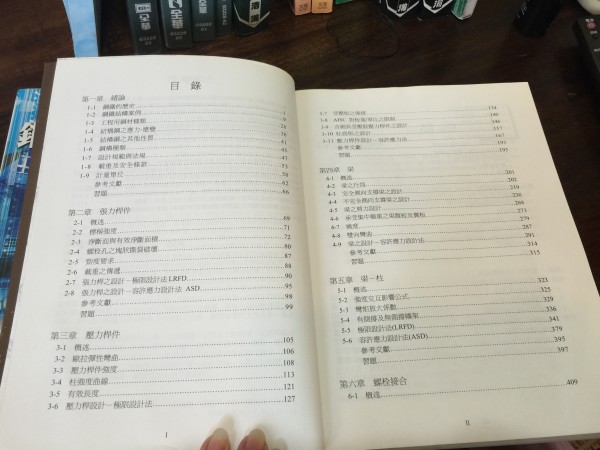 目 錄
第一章 緒論
1-1 鋼鐵的歷史 1
1-2 鋼鐵結構案例 9
1-3 工程用鋼材種類
1-4 結構鋼之應力-應變
1-5 結構鋼之其他性質
1-6 鋼構種類
1-7 設計規範與法規
1-8 載重及安全條款
1-9 計量單位
參考文獻 62
習題 66
第二章 張力桿件
2-1 概述 69
2-2 標稱強度 71
2-3 淨斷面與有效淨斷面積 72
2-4 螺栓孔之塊狀撕裂破壞 80
2-5 勁度要求 87
2-6 載重之傳遞 88
2-7 張力桿之設計－極限設計法 LRFD 90
2-8 張力桿之設計－容許應力設計法 ASD 95
參考文獻 98
習題 99
第三章 壓力桿件
3-1 概述 105
3-2 歐拉彈性彎曲 106
3-3 壓力桿件強度 108
3-4 柱強度曲線 113
3-5 有效長度 121
3-6 壓力桿設計－極限設計法 127
I
3-7 受壓板之強度 134
3-11 壓力桿件設計－容許應力法
參考文獻 191
習題 195
第四章 梁
4-1 概述 201
4-2 梁之行為
4-3 完全側向支撐梁之設計
4-4 不完全側向支撐梁之設計
4-5 梁之剪力設計
4-6 承受集中載重之梁腹板及翼板
4-7 撓度
4-8 雙向彎曲 287
4-9 梁之設計－容許應力設計法 291
參考文獻 314
習題 315
第五章 梁－柱
5-1 概述 323
5-2 強度交互影響公式 325
5-3 彎矩放大係數 329
5-4 有側撐及無側撐構架 336
5-5 極限設計法(LRFD) 341
5-6 容許應力設計法(ASD) 379
參考文獻 395
習題 397
第六章 螺栓接合
6-1 概述 409
II